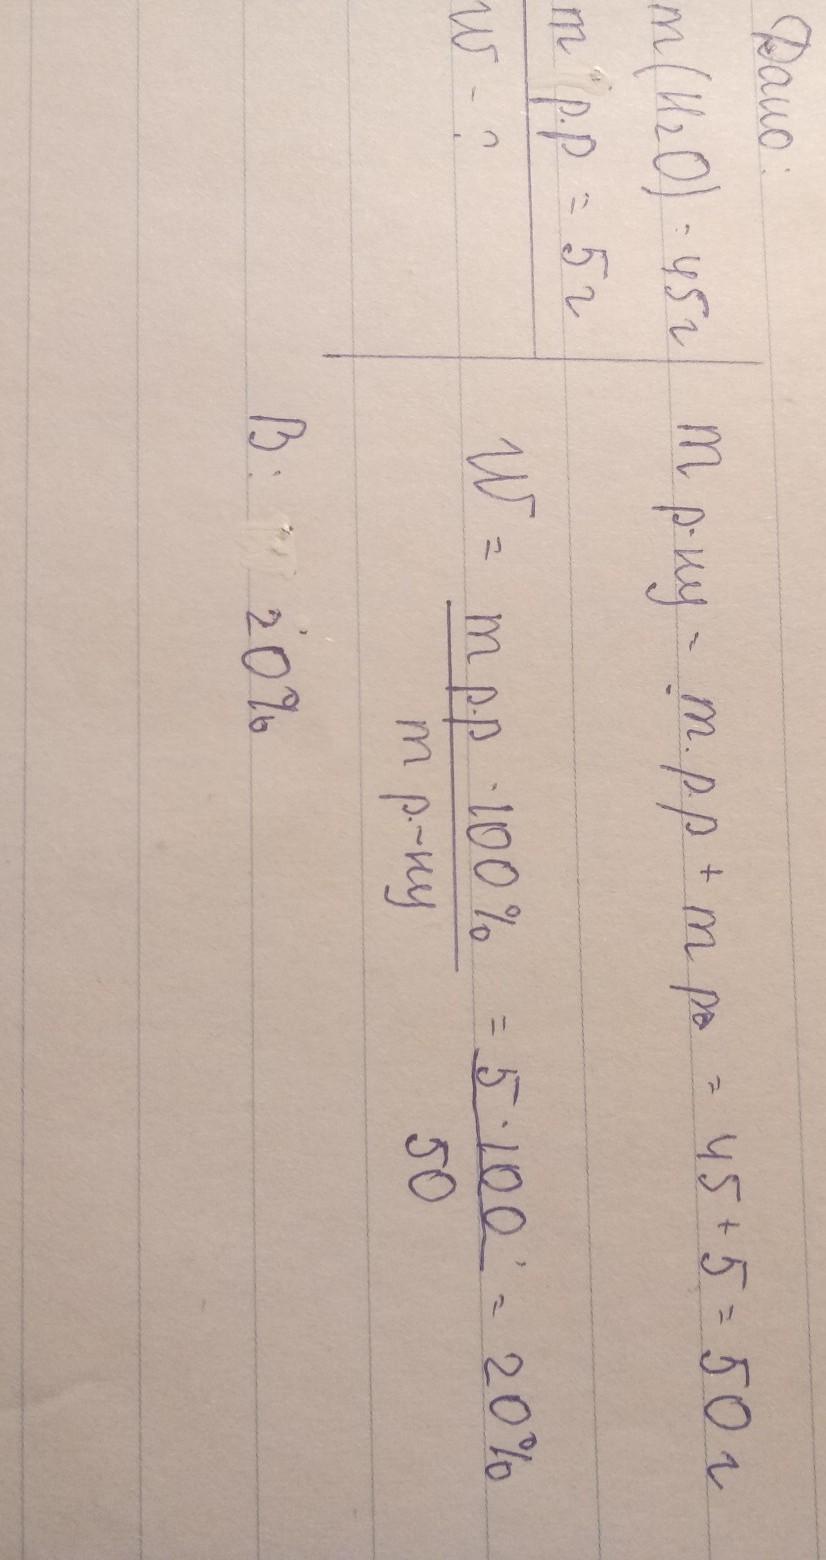 Дано:
m(H₂O) = 45г
m p.p = 5г
W - ?
m р-ну = m.p.p + m = 45 + 5 = 50 г
W = m p.p · 100% / m р-ну = 5 · 100 / 50 = 20%
В: 20%